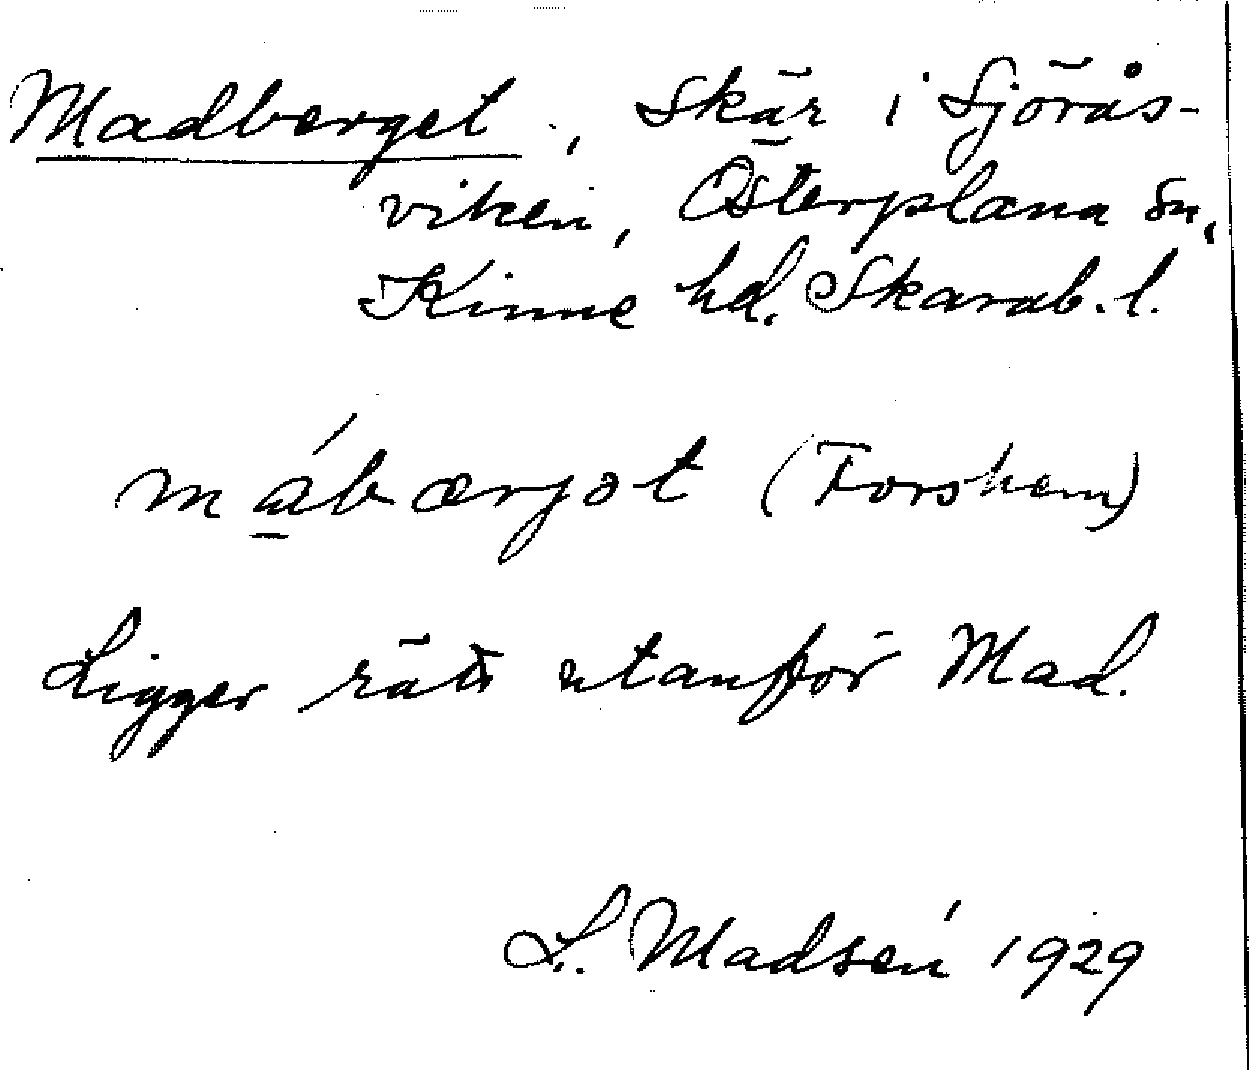 Madberget, skär i Sjörås-
viken, Österplana sn,
Kinne hd. Skarab. l.
má̱bærjət (Forshem)
Ligger rätt utanför Mad.
L. Madsén 1929